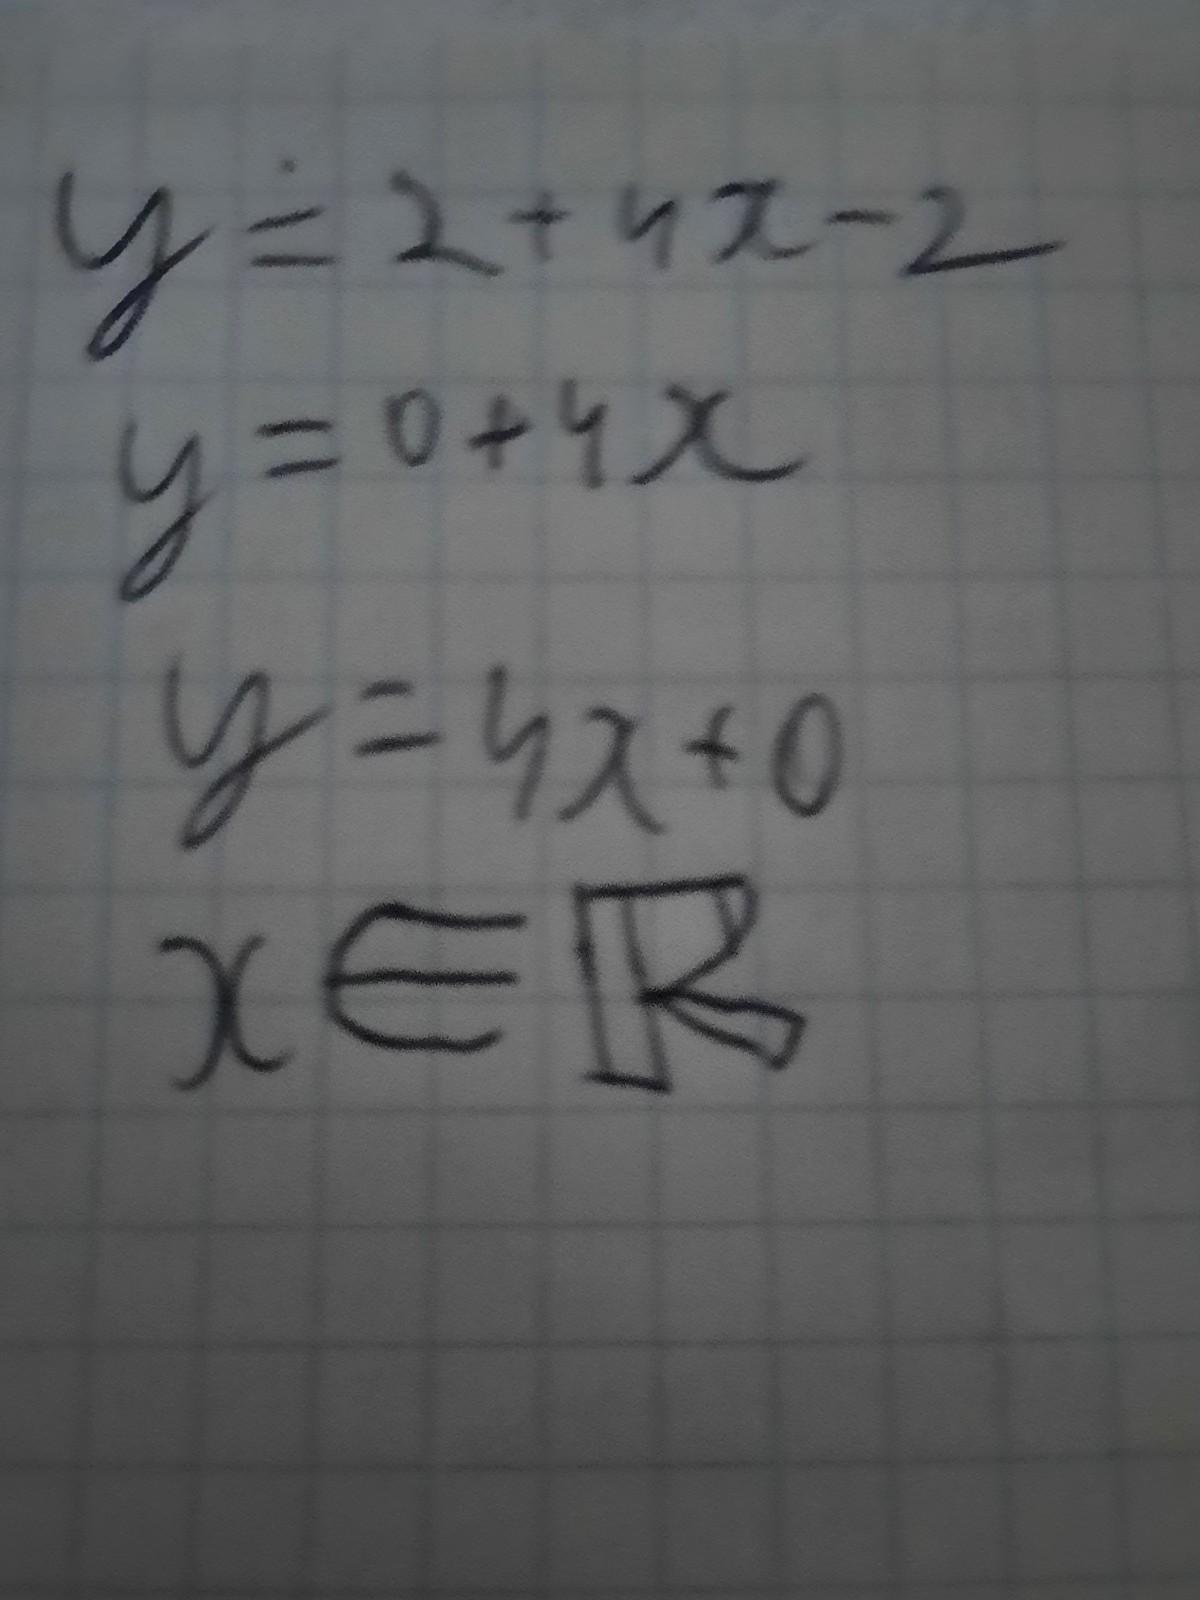 y = 2 + 4x - 2
y = 0 + 4x
y = 4x + 0
x ∈ ℝ